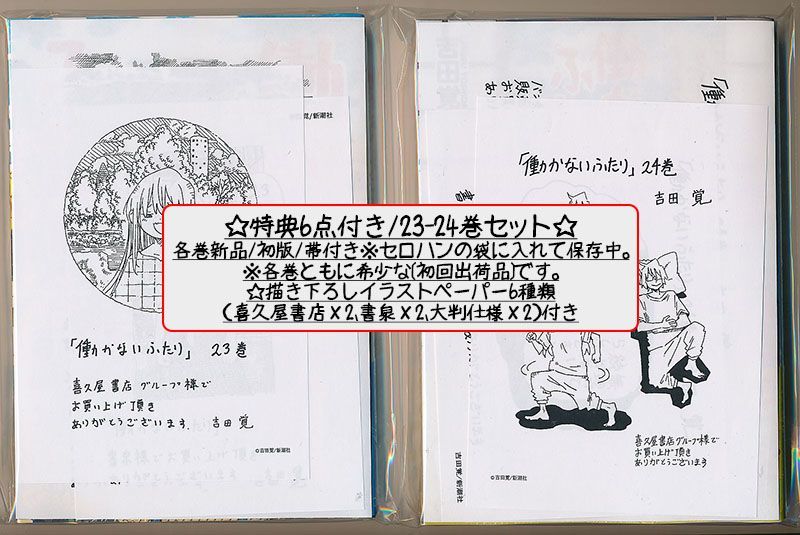 覚/新潮社
「働かないふたり」 23巻
喜久屋書店グループ様で
お買い上げ頂き
ありがとうございます. 吉田 覚
©吉田覚/新潮社
☆特典6点付き/23-24巻セット☆
各巻新品/初版/帯付き※セロハンの袋に入れて保存中。
※各巻ともに希少な(初回出荷品)です。
☆描き下ろしイラストペーパー6種類
(喜久屋書店X2,書泉X2,大判仕様X2)付き
「働かないふたり」 24巻
吉田 覚
喜久屋書店グループ様で
お買い上げ頂き
ありがとうございます
©吉田覚/新潮社
吉田覚/新潮社